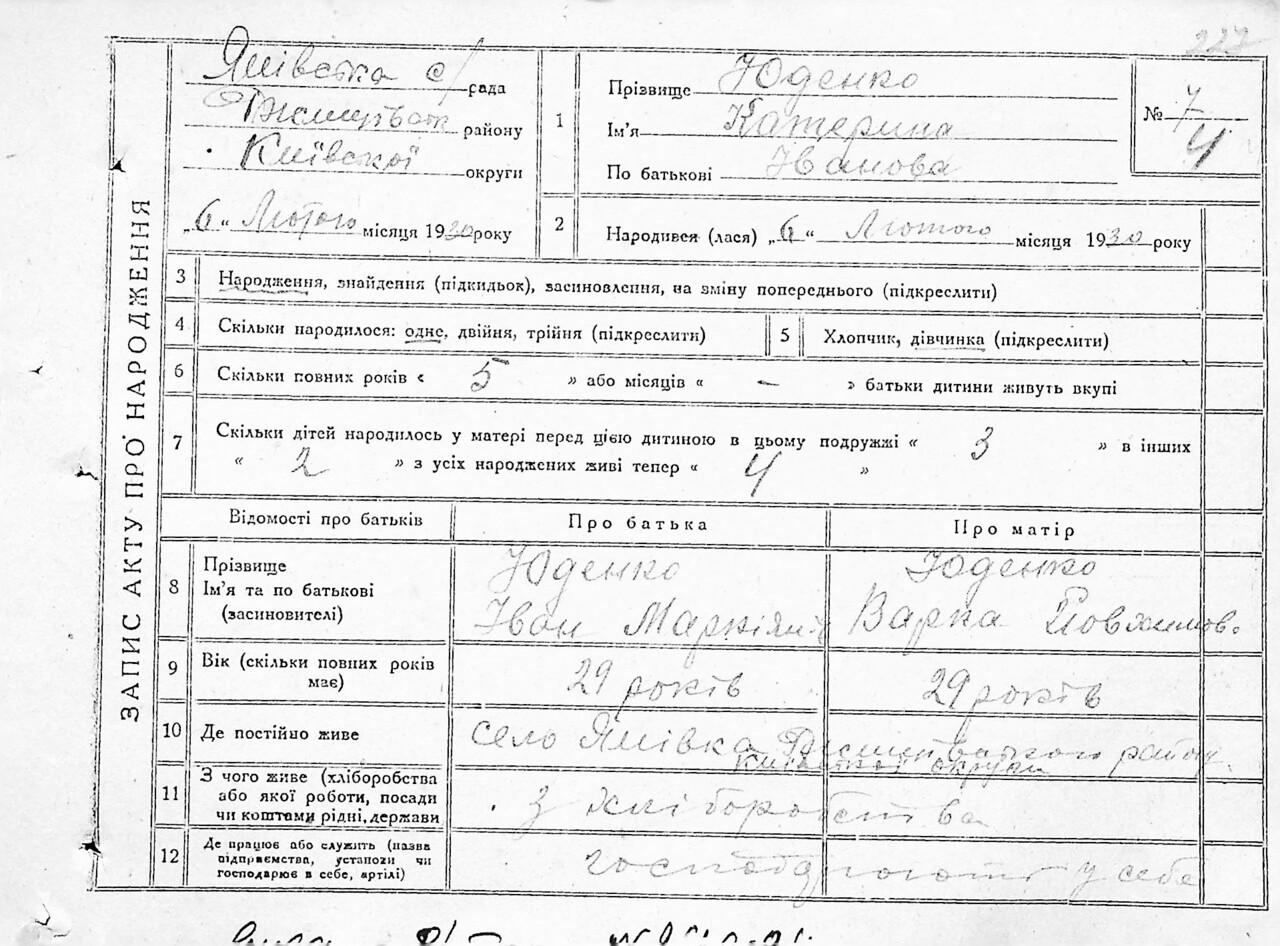 227
ЗАПИС АКТУ ПРО НАРОДЖЕННЯ
Яшівська с/рада
району
Київської округи
„6“ Лютого місяця 1930 року
1
Прізвище Юденко
Ім'я Катерина
По батькові Іванова
№ 7
4
2
Народився (лася) „6“ Лютого місяця 1930 року
3
Народження, знайдення (підкидьок), засиновлення, на зміну попереднього (підкреслити)
4
Скільки народилося: одне, двійня, трійня (підкреслити)
5
Хлопчик, дівчинка (підкреслити)
6
Скільки повних років « 5 » або місяців « — » батьки дитини живуть вкупі
7
Скільки дітей народилось у матері перед цією дитиною в цьому подружжі « 3 » в інших
« 2 » з усіх народжених живі тепер « 4 »
Відомості про батьків
Про батька
Про матір
8
Прізвище
Ім'я та по батькові
(засиновителі)
Юденко
Іван Маркіян
Юденко
Варка Йовхимов.
9
Вік (скільки повних років
має)
29 років
29 років
10
Де постійно живе
село Яшівка району
Київської округи
11
З чого живе (хліборобства
або якої роботи, посади
чи коштами рідні, держави
З хліборобства
12
Де працює або служить (назва
підприємства, установи чи
господарює в себе, артілі)
господарюють у себе